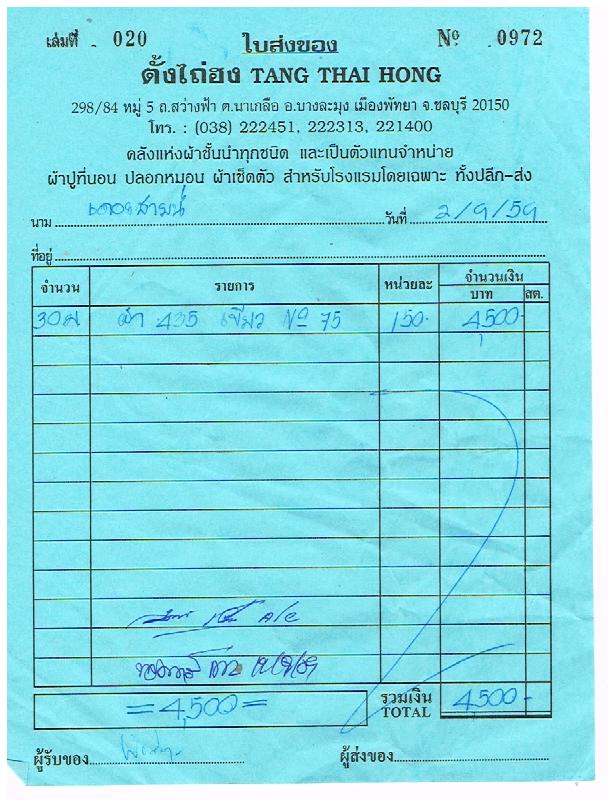 เล่มที่ 020 ใบส่งของ Nº 0972
ตั้งไถ่ฮง TANG THAI HONG
298/84 หมู่ 5 ถ.สว่างฟ้า ต.นาเกลือ อ.บางละมุง เมืองพัทยา จ.ชลบุรี 20150
โทร. : (038) 222451, 222313, 221400
คลังแห่งผ้าชั้นนำทุกชนิด และเป็นตัวแทนจำหน่าย
ผ้าปูที่นอน ปลอกหมอน ผ้าเช็ดตัว สำหรับโรงแรมโดยเฉพาะ ทั้งปลีก-ส่ง
นาม วันที่ 2/9/59
ที่อยู่
จำนวน รายการ หน่วยละ จำนวนเงิน
บาท สต.
30 ม ผ้า 435 เขียว Nº 75 150.- 4,500.-
A/C
=4,500= รวมเงิน 4,500 -
TOTAL
ผู้รับของ ผู้ส่งของ